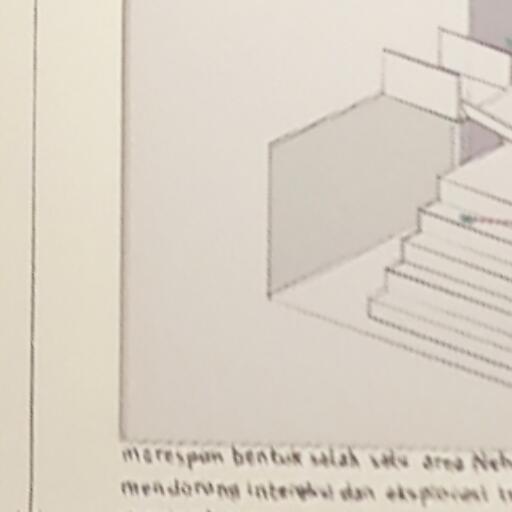 marespon bentuk salah satu area Neh
mendorong interaksi dan eksplorasi